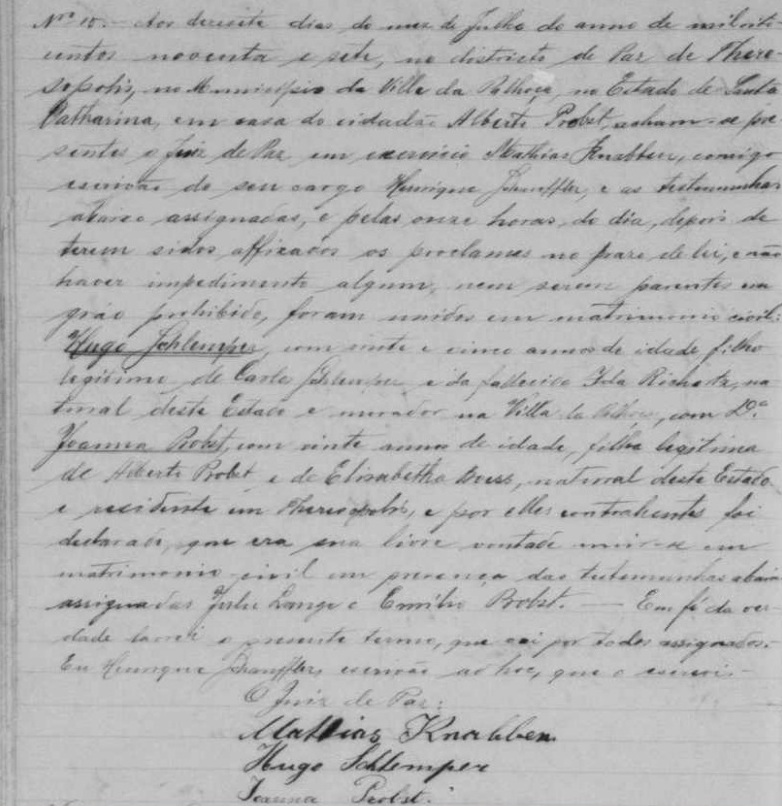 Nº 10. Aos desesete dias do mez de Julho do anno de mil oito
centos noventa e sete, no districto de Paz de There-
sopolis, no Municipio da Villa da Palhoça, no Estado de Santa
Catharina, em casa do cidadão Alberto Probst, acham-se pre
sentes o Juiz de Paz em exercicio Mathias Knabben, comigo
escrivão do seu cargo Henrique Schauffler, e as testemunhas
abaixo assignadas, e pelas onze horas do dia, depois de
terem sidos affixados os proclames no praso de lei, e não
haver impedimento algum, nem serem parentes em
gráo prohibido, foram unidos em matrimonio civil:
Hugo Schlemper, com vinte e cinco annos de idade filho
legitimo de Carlos Schlemper e da fallecida Ida na
tural deste Estado e morador na Villa da Palhoça, com D.ª
Joanna Probst, com vinte annos de idade, filha legitima
de Alberto Probst e de Elisabetha natural deste Estado
e residente em Theresopolis, e por elles contrahentes foi
declarado, que era sua livre vontade unir-se em
matrimonio civil em presença das testemunhas abaixo
assignadas Julio Lange e Emilio Probst. — Em fé da ver
dade lavrei o presente termo, que vai por todos assignados.
Eu Henrique Schauffler, escrivão ad hoc, que o escrevi.-
O Juiz de Paz:
Mathias Knabben
Hugo Schlemper
Joanna Probst.